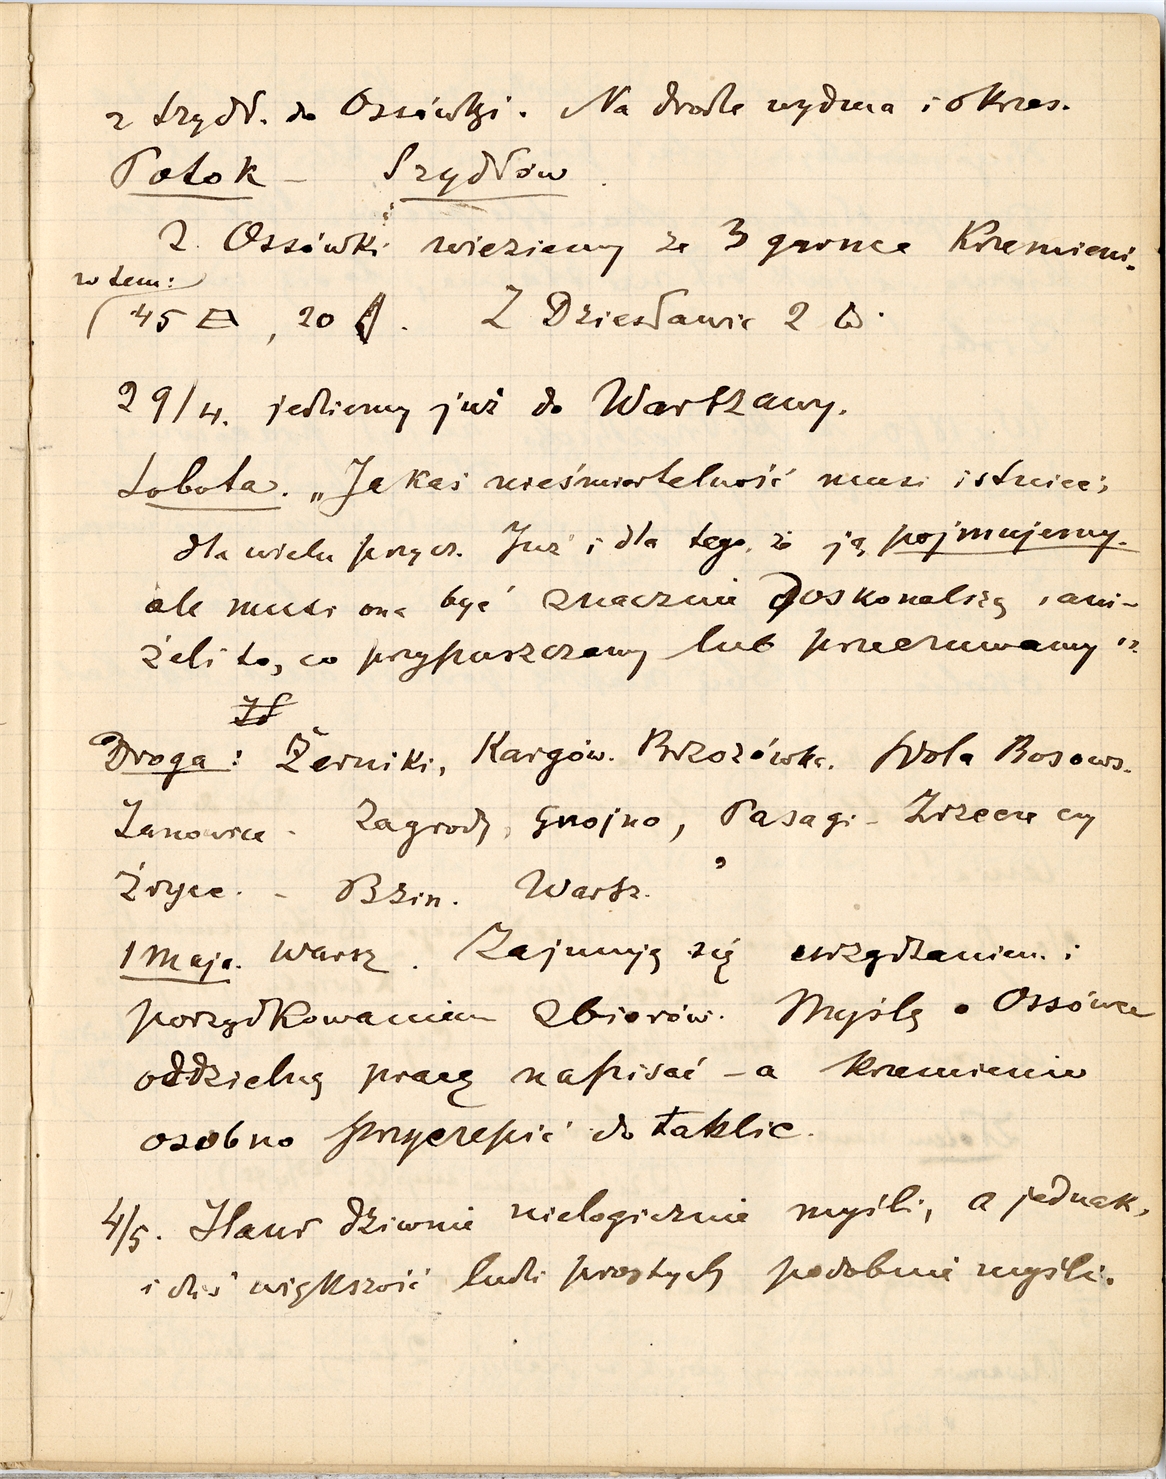 z Szydł. do Ossówki. Na drodze wydma i okrzes.
Potok – Szydłów.
Z Ossówki wieziemy ze 3 garnce krzemieni.
w tem:
(45 , 20 . Z Dziesławic 2 .
29/4. jedziemy już do Warszawy.
Sobota. „Jakaś nieśmiertelność musi istnieć;
dla wielu przycz. Już i dla tego, że ją pojmujemy.
ale musi ona być znacznie doskonalszą, ani-
żeli to, co przypuszczamy lub przeczuwamy"
Droga: Żerniki, Kargów. Brzozówka. Wola Bosows.
Janowice - Zagrody, Gnojno, Pasagi - Zrzecze czy
Żryce. - Bzin. Warsz.
1 Maja. Warsz. Zajmuję się urządzaniem i
porządkowaniem zbiorów. Myślę o Ossówce
oddzielną pracę napisać – a krzemienie
osobno przyczepić do tablic.
4/5. dziwnie nielogicznie myśli, a jednak,
i dziś większość ludzi prostych podobnie myśli.